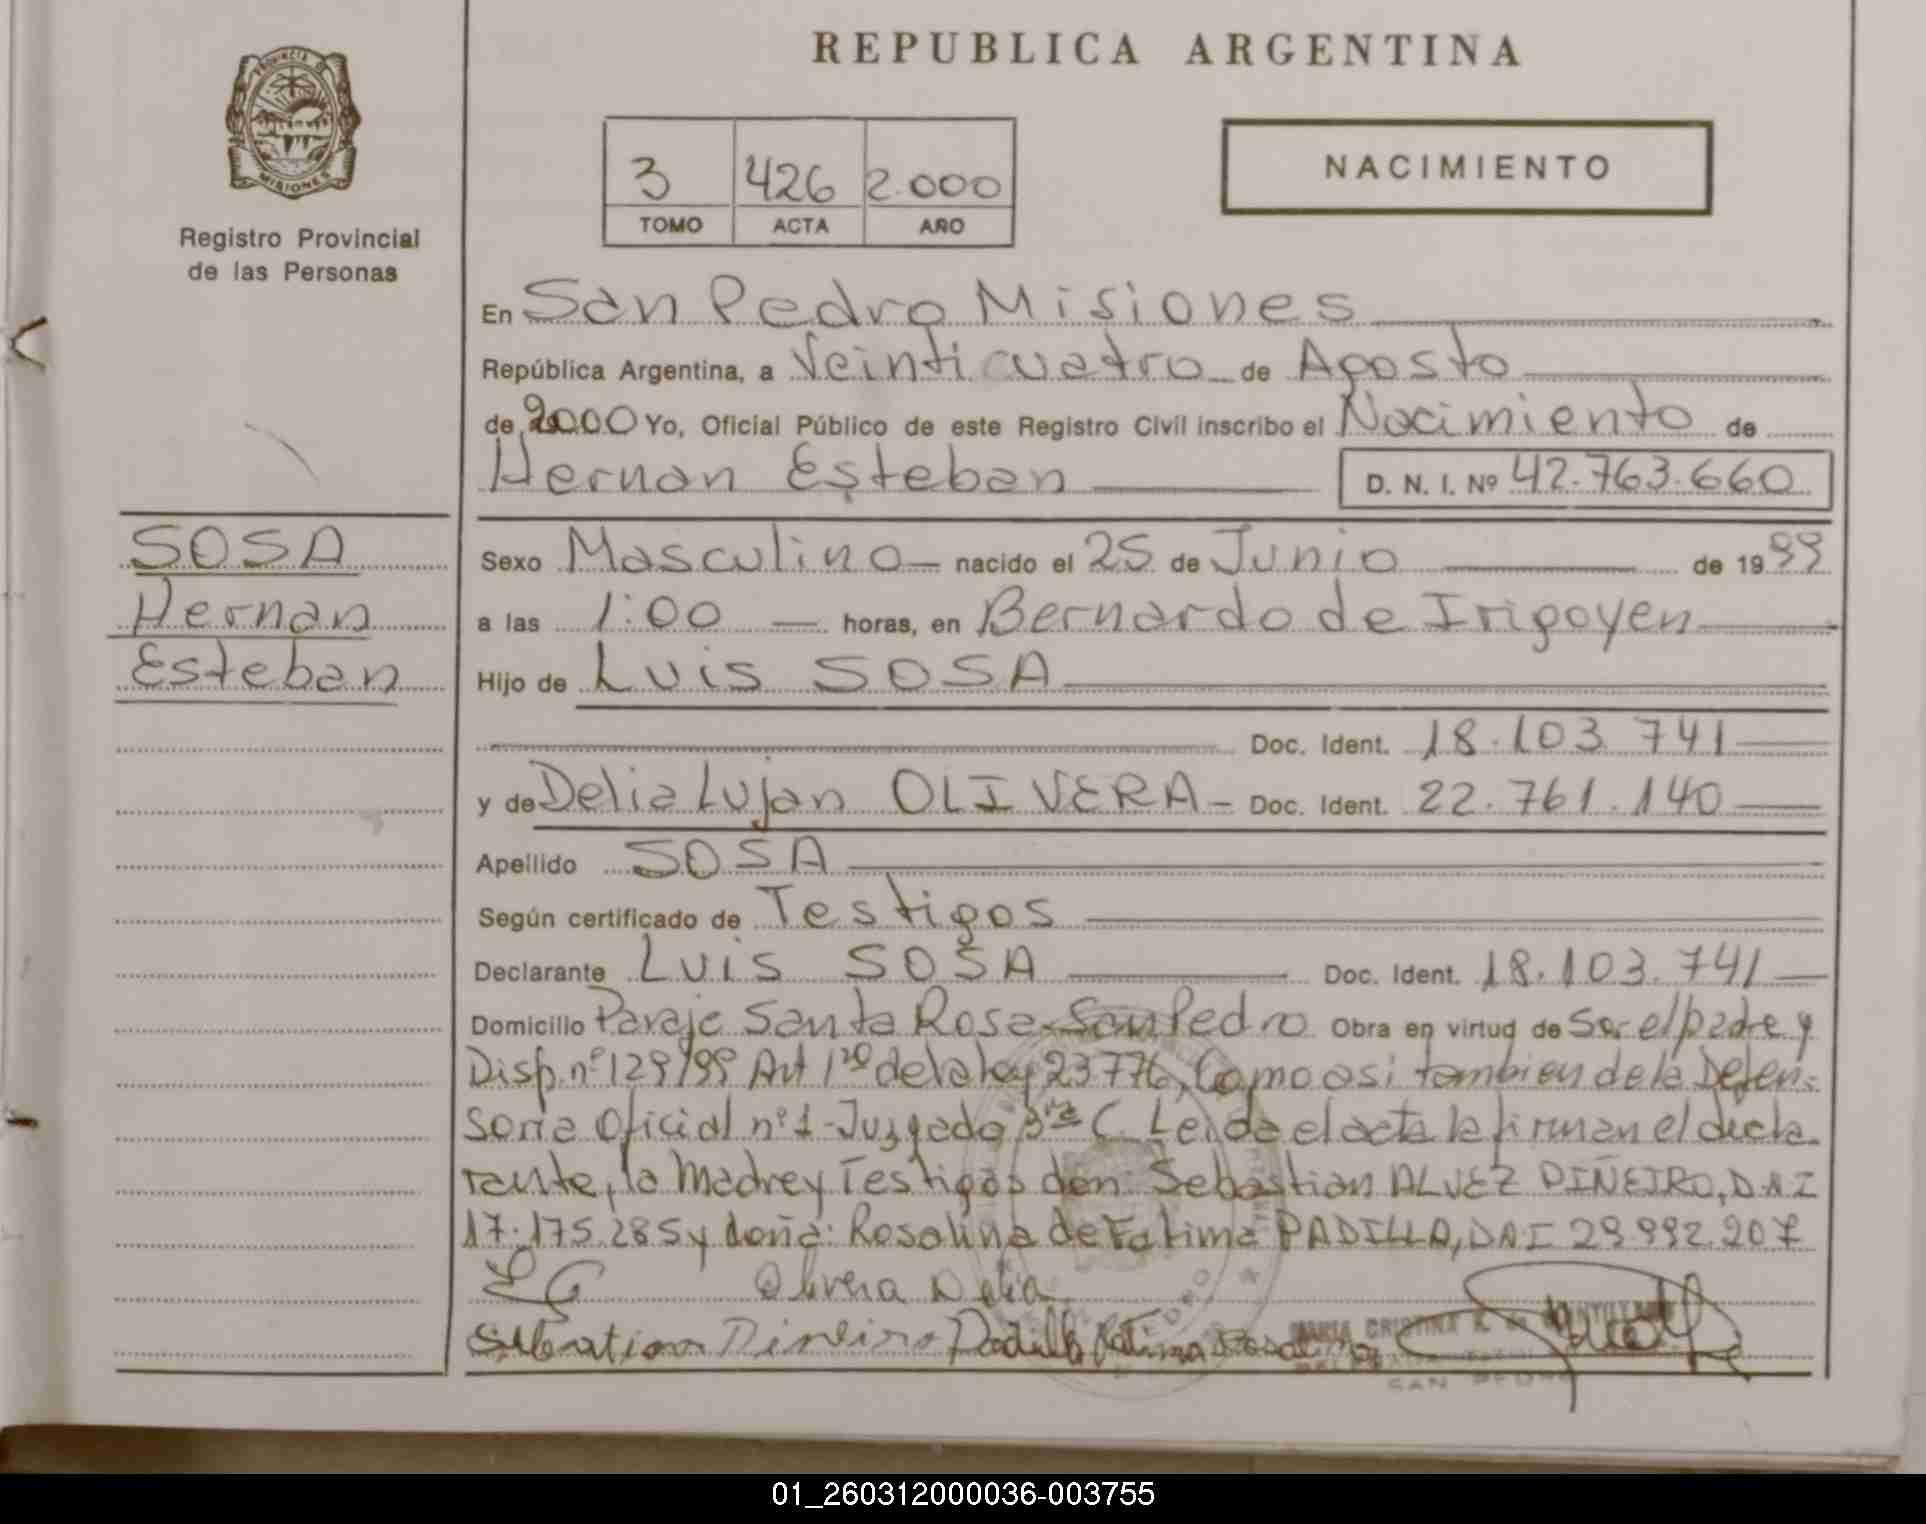 REPUBLICA ARGENTINA
PROVINCIA D MISIONES
Registro Provincial
de las Personas
3 426 2.000
TOMO ACTA AÑO
NACIMIENTO
En San Pedro Misiones
República Argentina, a Veinticuatro de Agosto
de 2000 Yo, Oficial Público de este Registro Civil inscribo el Nacimiento de
Hernan Esteban D. N. I. Nº 42.763.660
SOSA
Hernan
Esteban
Sexo Masculino nacido el 25 de Junio de 1999
a las 1:00 horas, en Bernardo de Irigoyen
Hijo de Luis SOSA
Doc. Ident. 18.103.741
y de Delia Lujan OLIVERA Doc. Ident. 22.761.140
Apellido SOSA
Según certificado de Testigos
Declarante Luis SOSA Doc. Ident. 18.103.741
Domicilio Paraje Santa Rosa San Pedro Obra en virtud de Ser el padre y
Disp. nº 129/99 Art 1º de la ley 23776, Como asi tambien de la Defen-
soria Oficial nº 1 - Juzgado C. Leida el acta la firman el decla-
rante, la Madre y Testigos don Sebastian ALVEZ PIÑEIRO, D.N.I
17.175.285 y doña: Rosalina de Fatima PADILLA, DNI 29.992.207
Olivera Delia
Sebastian Piñeiro Padilla Fatima
MARIA CRISTINA
SAN PEDRO
01_260312000036-003755